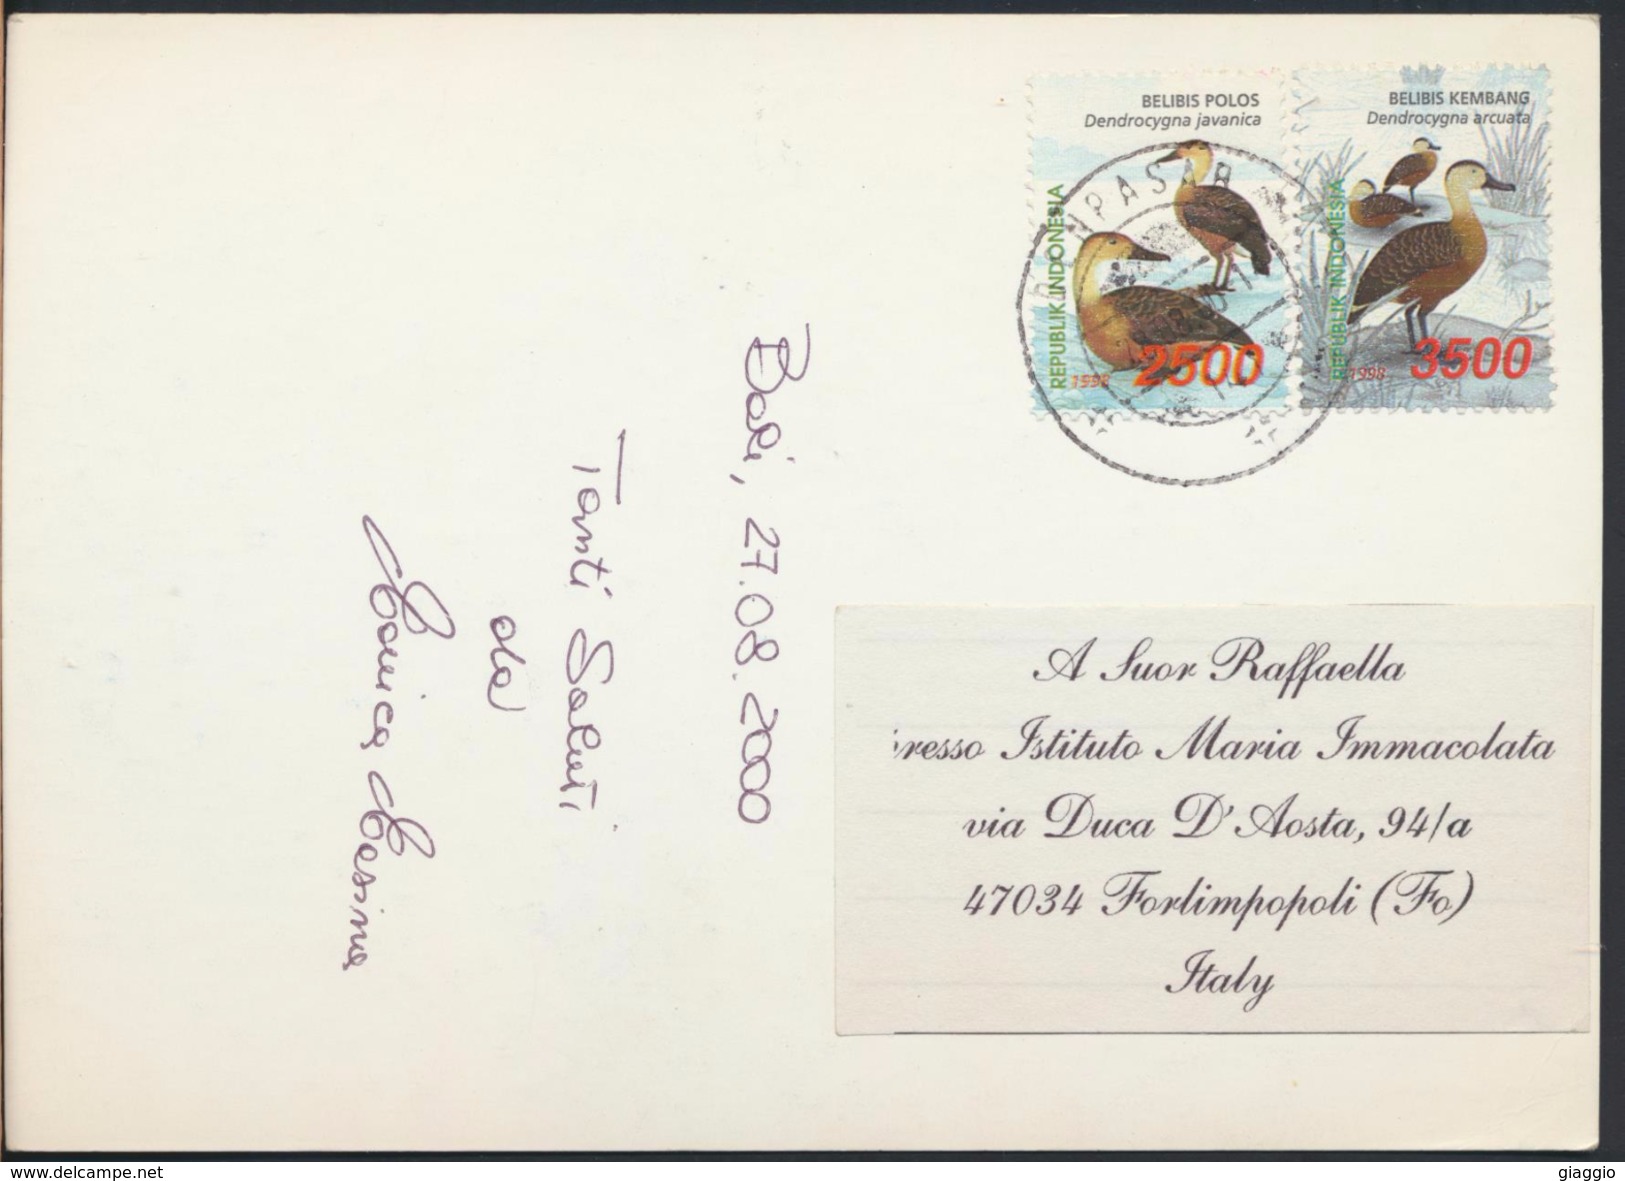 BELIBIS POLOS
Dendrocygna javanica
REPUBLIK INDONESIA
1998
2500
BELIBIS KEMBANG
Dendrocygna arcuata
REPUBLIK INDONESIA
1998
3500
PASAR
Bali, 27.08.2000
Tanti Saluti
da
A Suor Raffaella
resso Istituto Maria Immacolata
via Duca D'Aosta, 94/a
47034 Forlimpopoli (Fo)
Italy
giaggio